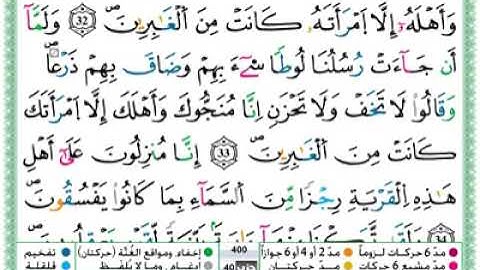 وَأَهْلَهُۥٓ إِلَّا ٱمْرَأَتَهُۥ كَانَتْ مِنَ ٱلْغَـٰبِرِينَ 32 وَلَمَّآ
أَن جَآءَتْ رُسُلُنَا لُوطًا سِىٓءَ بِهِمْ وَضَاقَ بِهِمْ ذَرْعًا
وَقَالُوا۟ لَا تَخَفْ وَلَا تَحْزَنْ إِنَّا مُنَجُّوكَ وَأَهْلَكَ إِلَّا ٱمْرَأَتَكَ
كَانَتْ مِنَ ٱلْغَـٰبِرِينَ 33 إِنَّا مُنزِلُونَ عَلَىٰٓ أَهْلِ
هَـٰذِهِ ٱلْقَرْيَةِ رِجْزًا مِّنَ ٱلسَّمَآءِ بِمَا كَانُوا۟ يَفْسُقُونَ
34
مدّ 6 حركات لزوماً مدّ 2 أو 4 أو 6 جوازاً 400 إخفاء ومواقع الغنّة (حركتان) تفخيم
مدّ حركتان إدغام ، وما لا يُلفظ قلقلة